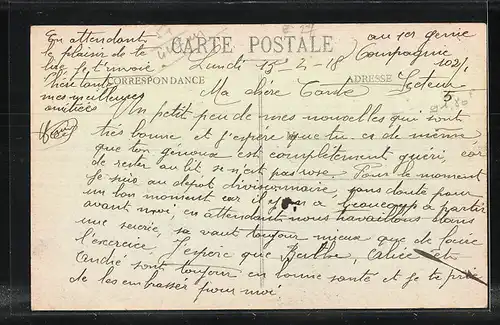 En attendant
le plaisir de te
lire je t'envoie
chère tante
mes meilleures
amitiés
CARTE POSTALE
CORRESPONDANCE
ADRESSE
au 1er genie
Compagnie
Secteur
Lundi 15-4-18
Ma chère Tante
Un petit peu de mes nouvelles qui sont
très bonne et j'espère que tu es de même
que ton genoux est completement guéri, car
de rester au lit, se n'est pas rose. Pour le moment
je suis au depot divisionnaire, sans doute pour
un bon moment car il y en a beaucoup a partir
avant moi, en attendant nous travaillons dans
une sucrie, sa vaut toujour mieux que de faire
l'exercice. J'espère que Berthe, et
André sont toujour en bonne santé et je te prie
de les embrasser pour moi.